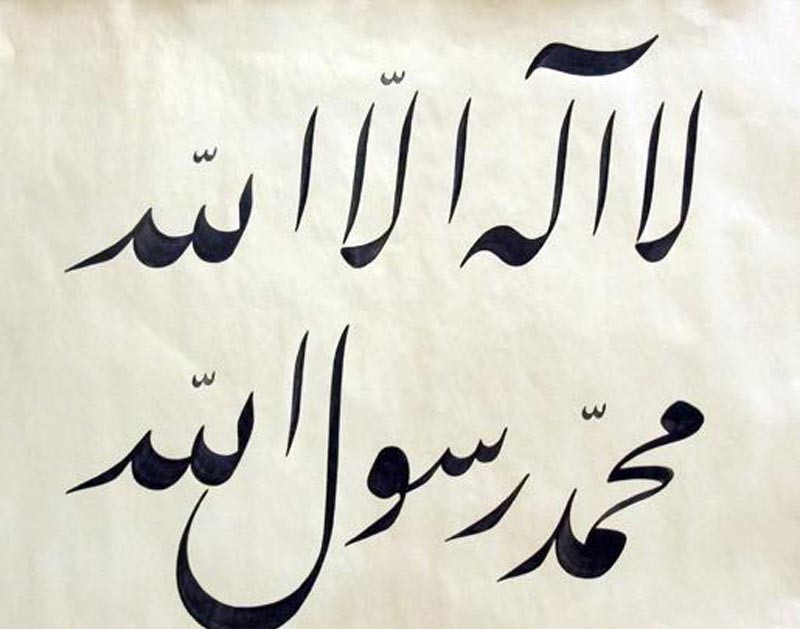 لا اله الّا اللّه
محمّد رسول اللّه